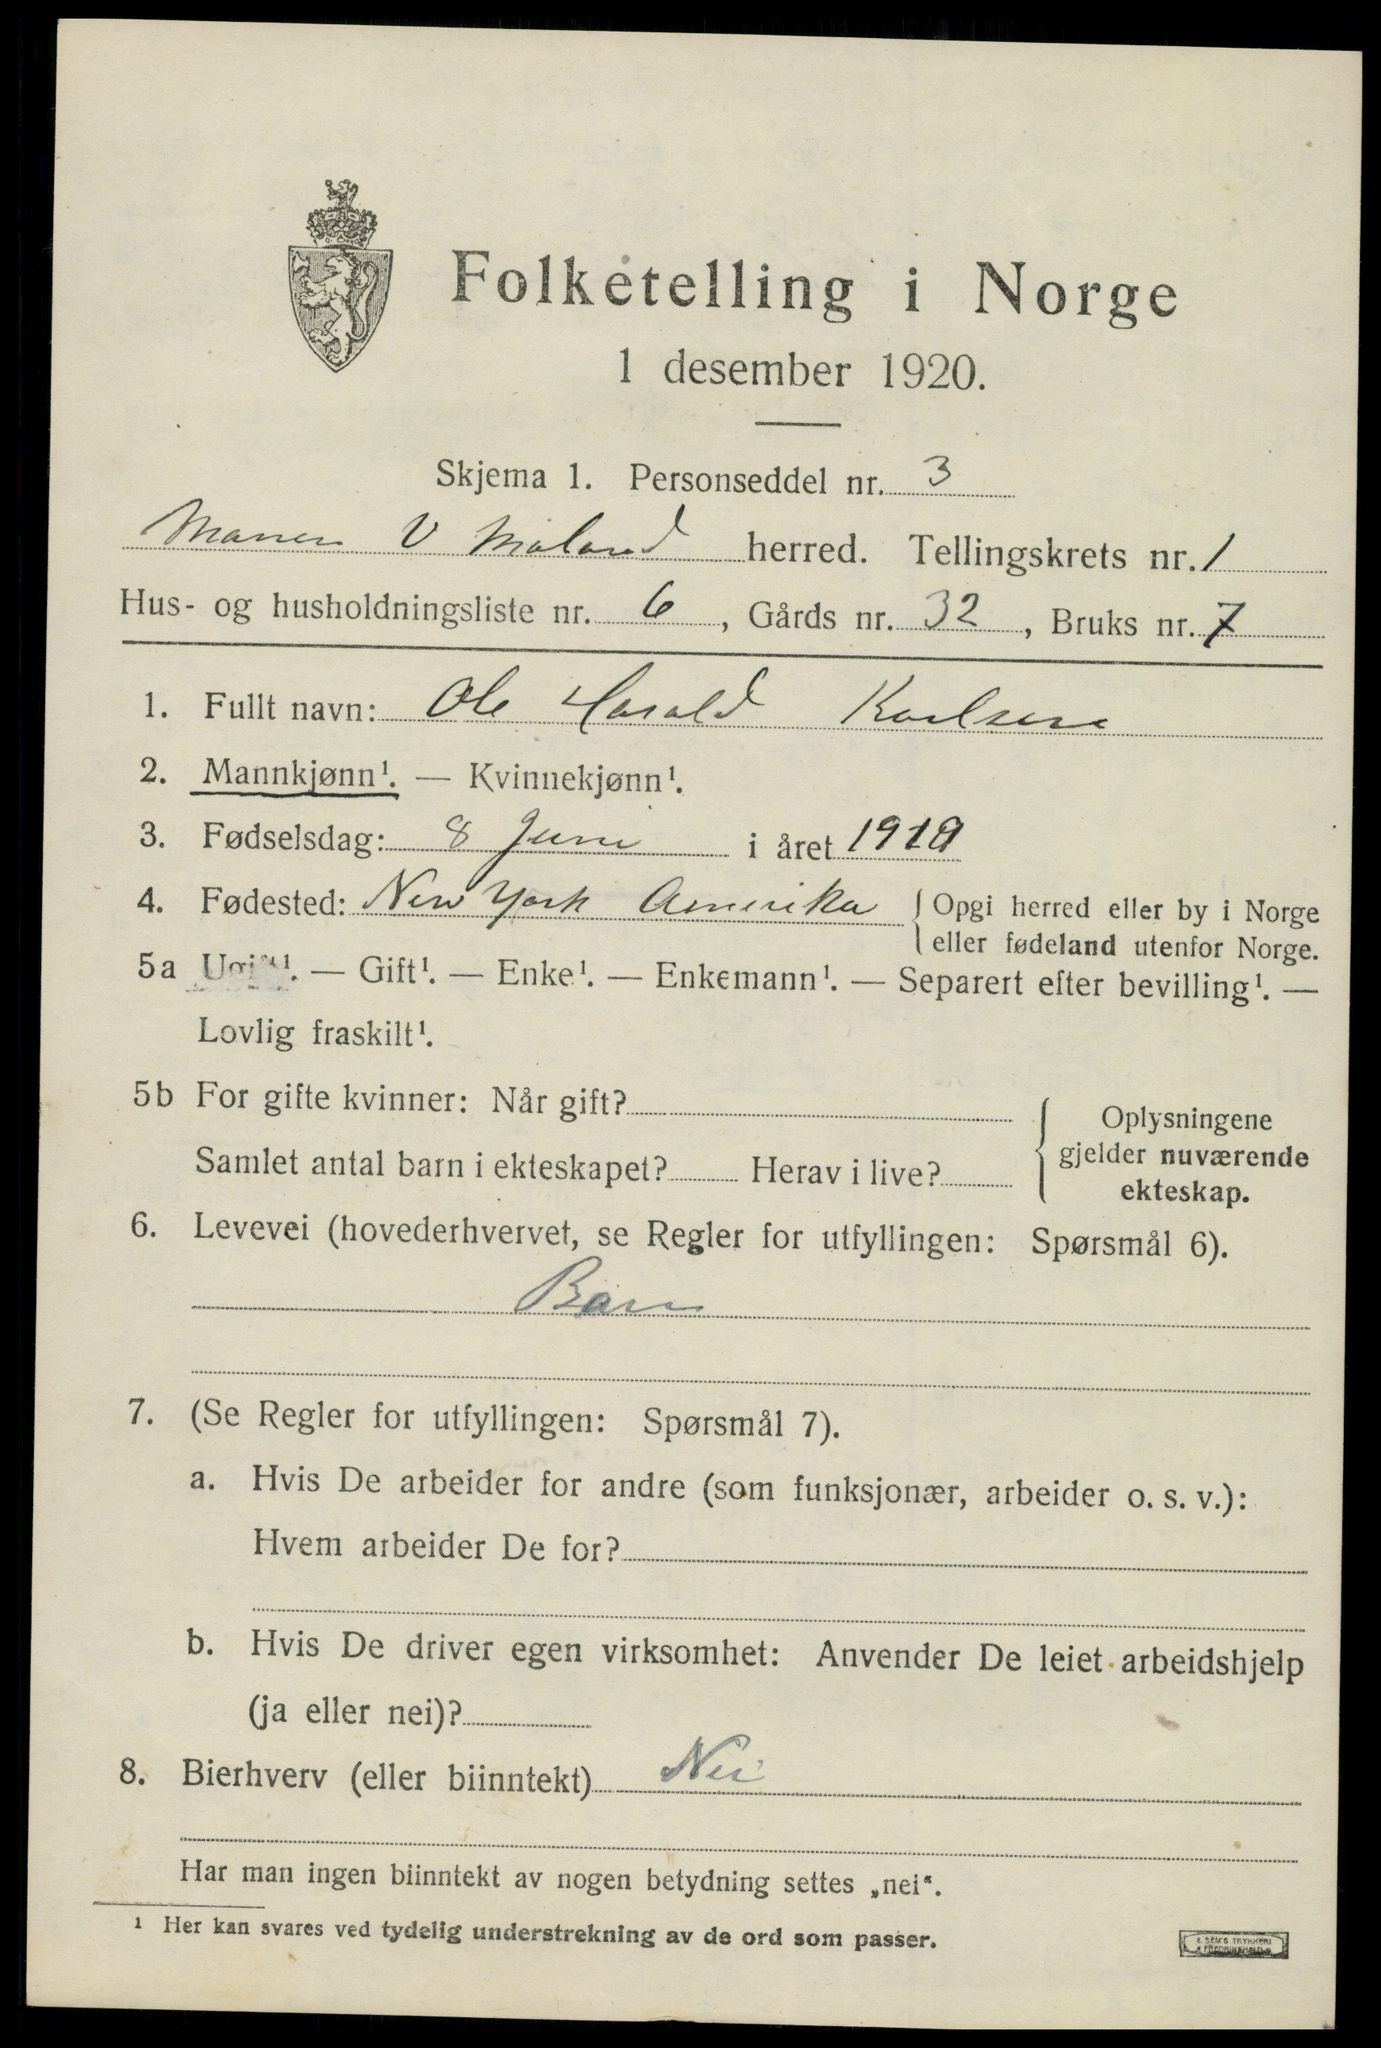 Folketelling i Norge
1 desember 1920.
Skjema 1. Personseddel nr. 3
V Moland herred. Tellingskrets nr. 1
Hus- og husholdningsliste nr. 6, Gårds nr. 32, Bruks nr. 7
1. Fullt navn: Ole Harald Karlsen
2. Mannkjønn¹. — Kvinnekjønn¹.
3. Fødselsdag: 8 Juni i året 1919
4. Fødested: New York Amerika { Opgi herred eller by i Norge
eller fødeland utenfor Norge.
5a Ugift¹. — Gift¹. — Enke¹. — Enkemann¹. — Separert efter bevilling¹. —
Lovlig fraskilt¹.
5b For gifte kvinner: Når gift?
Samlet antal barn i ekteskapet? Herav i live?
{ Oplysningene
gjelder nuværende
ekteskap.
6. Levevei (hovederhvervet, se Regler for utfyllingen: Spørsmål 6).
Barn
7. (Se Regler for utfyllingen: Spørsmål 7).
a. Hvis De arbeider for andre (som funksjonær, arbeider o. s. v.):
Hvem arbeider De for?
b. Hvis De driver egen virksomhet: Anvender De leiet arbeidshjelp
(ja eller nei)?
8. Bierhverv (eller biinntekt) Nei
Har man ingen biinntekt av nogen betydning settes „nei“.
¹ Her kan svares ved tydelig understrekning av de ord som passer.
E. SEM'S TRYKKERI
FREDRIKSHALD